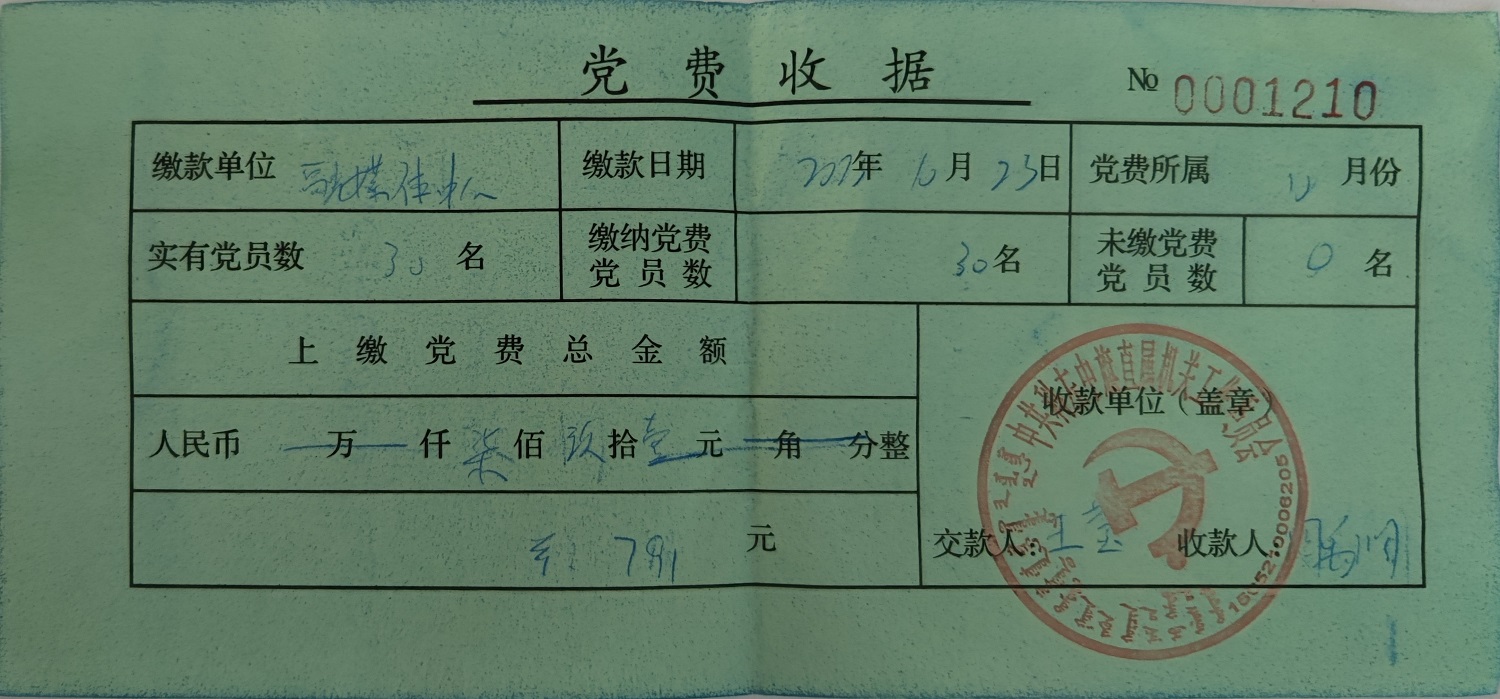 党费收据
№ 0001210
缴款单位 融媒体中心 缴款日期 2023年 10月 23日 党费所属 月份
实有党员数 30 名 缴纳党费党员数 30名 未缴党费党员数 0 名
上缴党费总金额
人民币 万 仟 柒 佰 玖 拾 壹 元 角 分整
791 元
收款单位（盖章）
交款人：王莹 收款人
中共科左中旗直属机关工作委员会